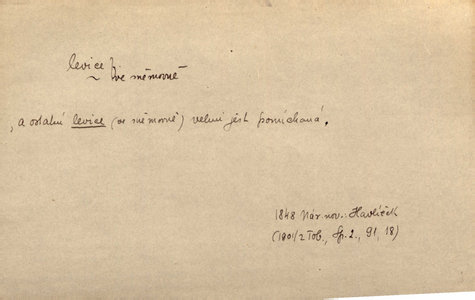 levice f.
~ ve sněmovně
„a ostatní levice (ve sněmovně) velmi jest pomíchaná‘.
1848 Nár. nov.: Havlíček
(1901/2 Tob., Sp. 2., 91, 18)